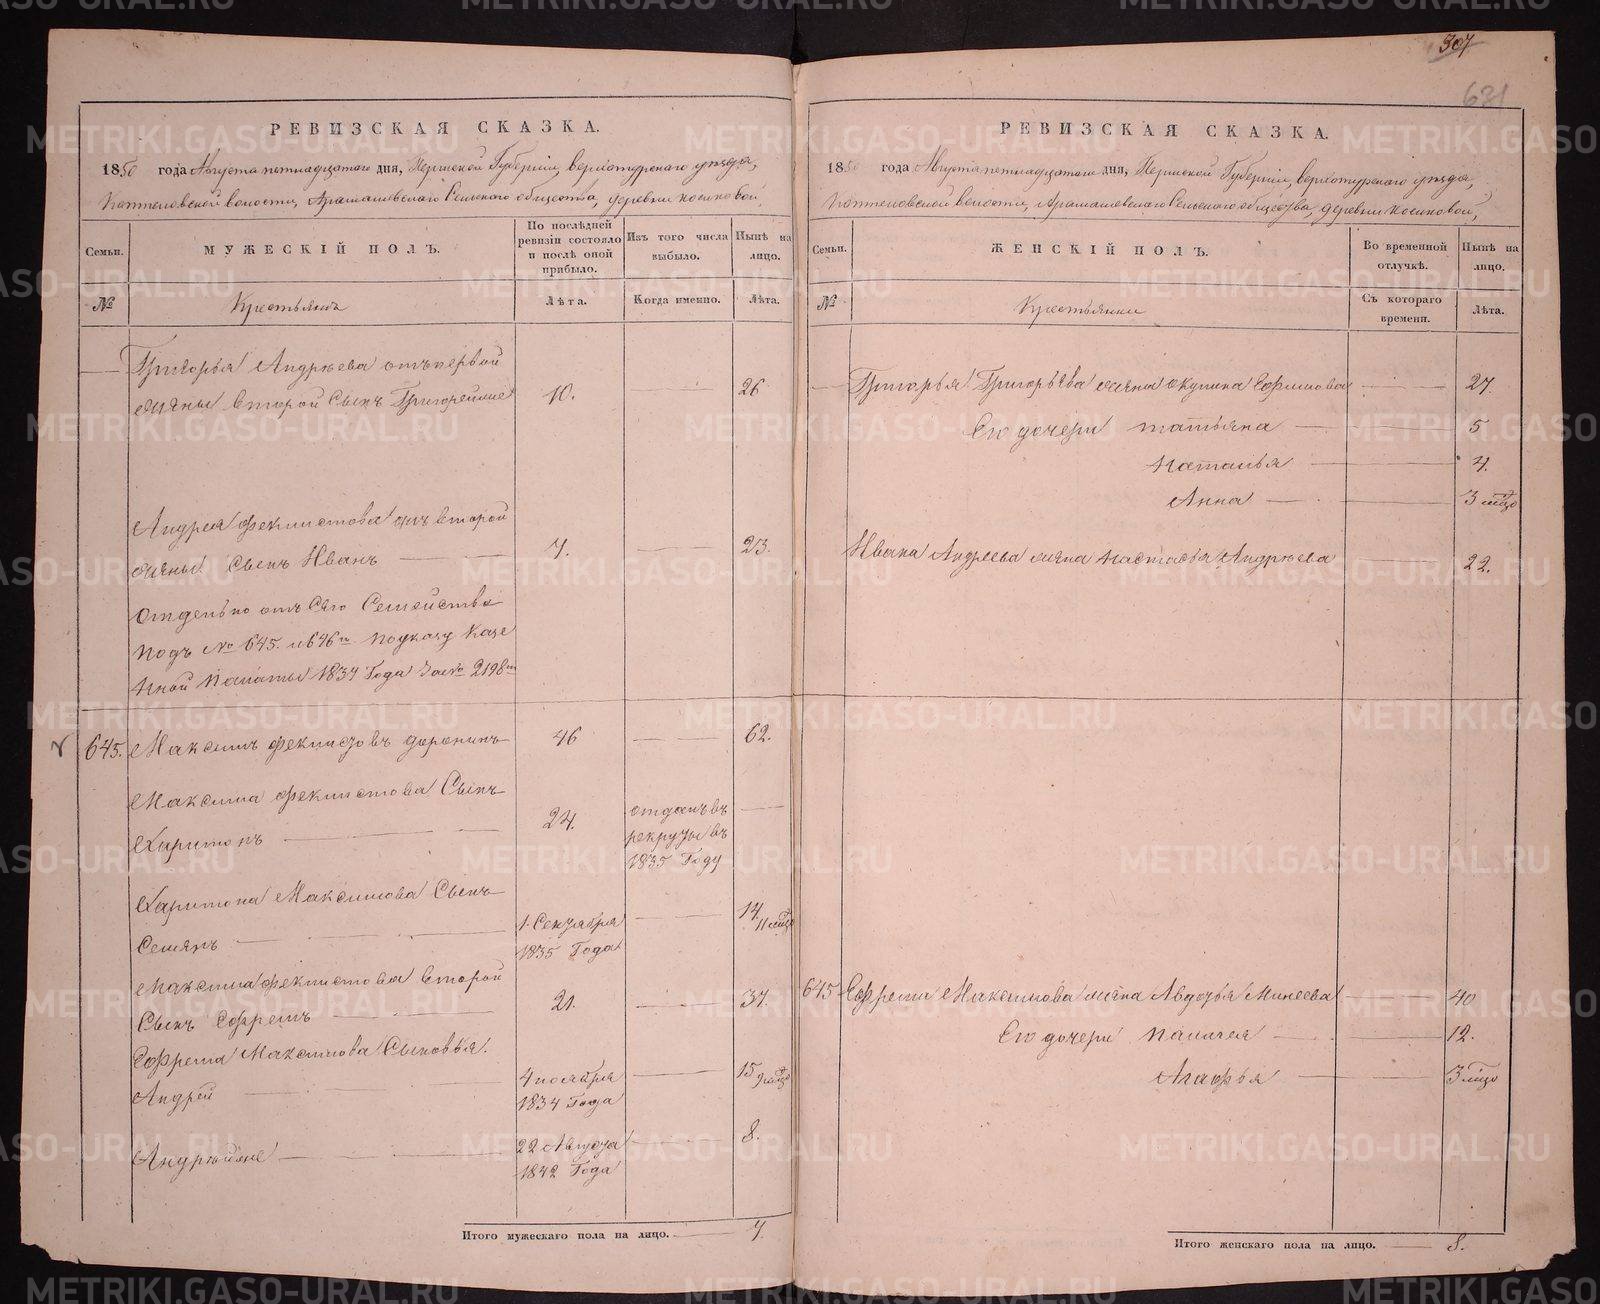 307
631
РЕВИЗСКАЯ СКАЗКА.
1850 года Августа пятнадцатаго дня, Пермской Губернiи, верхотурскаго уѣзда,
Коптеловской волости, Арамашевскаго Сельскаго общества, деревни Косиковой,
Семьи.
МУЖЕСКIЙ ПОЛЪ.
По послѣдней ревизiи состояло и послѣ оной прибыло.
Изъ того числа выбыло.
Нынѣ на лицо.
№
Крестьянъ
Лѣта.
Когда именно.
Лѣта.
Григорья Андрѣева отъ первой
жены второй Сынъ Григорейже 10. 26
Андрея феклистова отъ второй
жены Сынъ Иванъ 7. 23.
Отдельно отъ Сего Семейства
подъ № 645. и 646м по указу Казе
нной Палаты 1834 Года за № 2198м
645. Максимъ феклистовъ доронинъ 46 62.
Максима феклистова Сынъ
Харитонъ 24. отданъ въ рекруты въ 1835 Году
Харитона Максимова Сынъ
Семянъ 1. Сентября 1835 Года 14. 11 мѣцо
Максима феклистова второй
Сынъ Ефремъ 21. 37.
Ефрема Максимова Сыновья.
Андрей 4 ноября 1834 Года 15 9 мѣцо
Андрѣйже 22 Августа 1842 Года 8.
Итого мужескаго пола на лицо. 7.
РЕВИЗСКАЯ СКАЗКА.
1850 года Августа пятнадцатаго дня, Пермской Губернiи, верхотурскаго уѣзда,
Коптеловской волости, Арамашевскаго Сельскаго общества, деревни Косиковой,
Семьи.
ЖЕНСКIЙ ПОЛЪ.
Во временной отлучкѣ.
Нынѣ на лицо.
№
Крестьянки
Съ котораго времени.
Лѣта.
Григорья Григорьева жена Акулина Ефимова 27.
Его дочери Татьяна 5
Наталья 4.
Анна 3 мѣцо
Ивана Андреева жена Настасья Андрѣева 22.
645 Ефрема Максимова жена Авдотья Минеева 40
Его дочери Палагея 12.
Агафья 3 мѣцо
Итого женскаго пола на лицо. 8.
METRIKI.GASO-URAL.RU